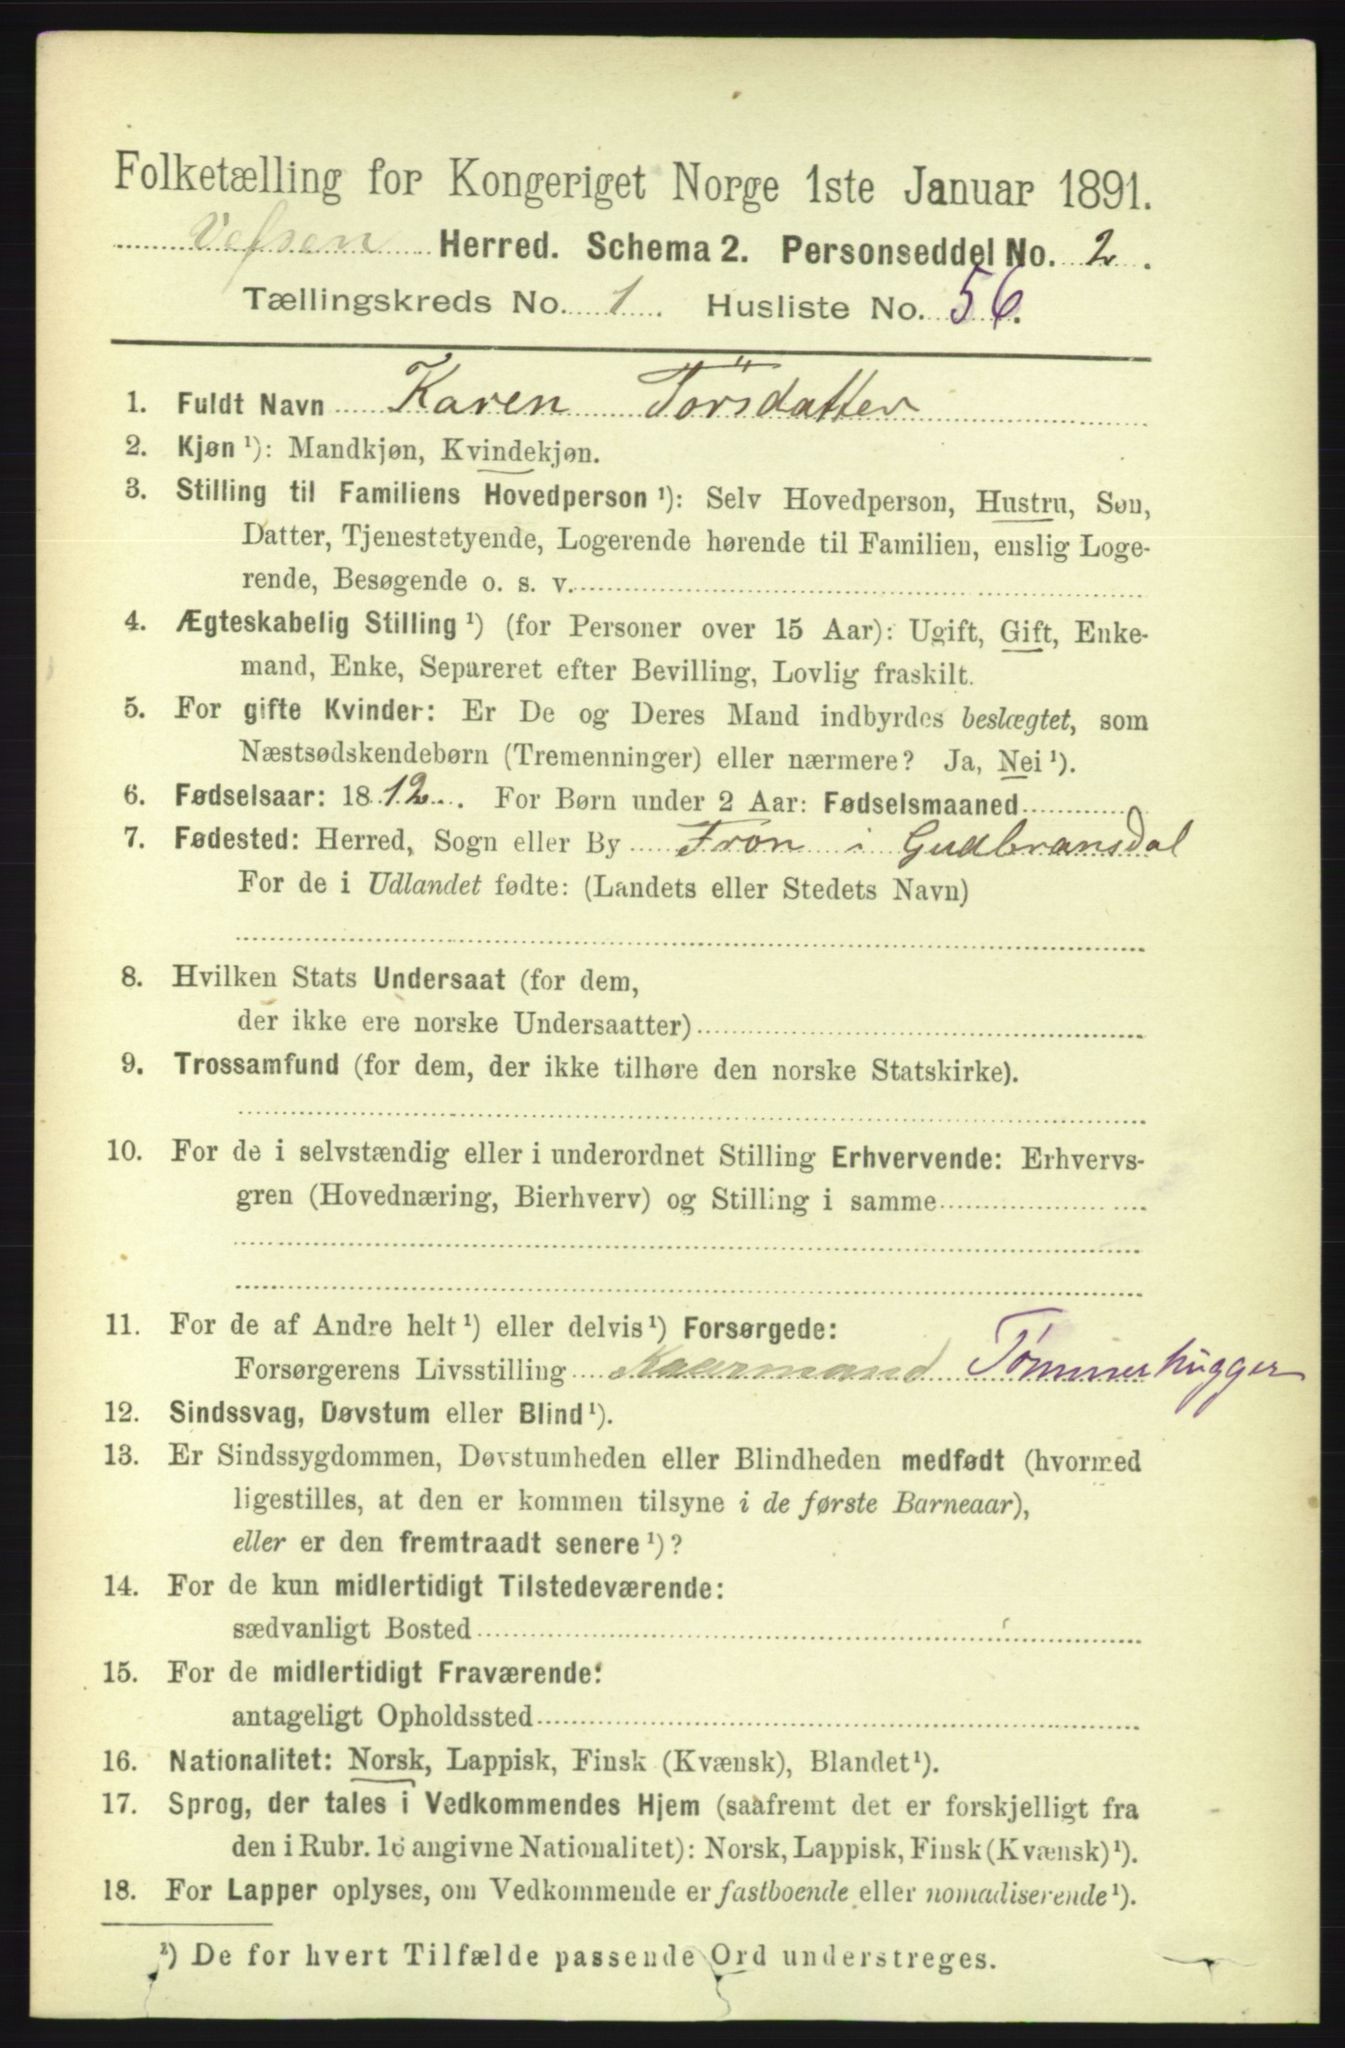 Folketælling for Kongeriget Norge 1ste Januar 1891.
Vefsen Herred. Schema 2. Personseddel No. 2.
Tællingskreds No. 1. Husliste No. 56.
1. Fuldt Navn Karen Törsdatter
2. Kjøn ¹): Mandkjøn, Kvindekjøn.
3. Stilling til Familiens Hovedperson ¹): Selv Hovedperson, Hustru, Søn,
Datter, Tjenestetyende, Logerende hørende til Familien, enslig Loge-
rende, Besøgende o. s. v.
4. Ægteskabelig Stilling ¹) (for Personer over 15 Aar): Ugift, Gift, Enke-
mand, Enke, Separeret efter Bevilling, Lovlig fraskilt.
5. For gifte Kvinder: Er De og Deres Mand indbyrdes beslægtet, som
Næstsødskendebørn (Tremenninger) eller nærmere? Ja, Nei ¹).
6. Fødselsaar: 1812. For Børn under 2 Aar: Fødselsmaaned
7. Fødested: Herred, Sogn eller By Fron i Gudbransdal
For de i Udlandet fødte: (Landets eller Stedets Navn)
8. Hvilken Stats Undersaat (for dem,
der ikke ere norske Undersaatter)
9. Trossamfund (for dem, der ikke tilhøre den norske Statskirke).
10. For de i selvstændig eller i underordnet Stilling Erhvervende: Erhvervs-
gren (Hovednæring, Bierhverv) og Stilling i samme
11. For de af Andre helt ¹) eller delvis ¹) Forsørgede:
Forsørgerens Livsstilling Kaarmand Tømmerhugger
12. Sindssvag, Døvstum eller Blind ¹).
13. Er Sindssygdommen, Døvstumheden eller Blindheden medfødt (hvormed
ligestilles, at den er kommen tilsyne i de første Barneaar),
eller er den fremtraadt senere ¹)?
14. For de kun midlertidigt Tilstedeværende:
sædvanligt Bosted
15. For de midlertidigt Fraværende:
antageligt Opholdssted
16. Nationalitet: Norsk, Lappisk, Finsk (Kvænsk), Blandet ¹).
17. Sprog, der tales i Vedkommendes Hjem (saafremt det er forskjelligt fra
den i Rubr. 16 angivne Nationalitet): Norsk, Lappisk, Finsk (Kvænsk) ¹).
18. For Lapper oplyses, om Vedkommende er fastboende eller nomadiserende ¹).
¹) De for hvert Tilfælde passende Ord understreges.